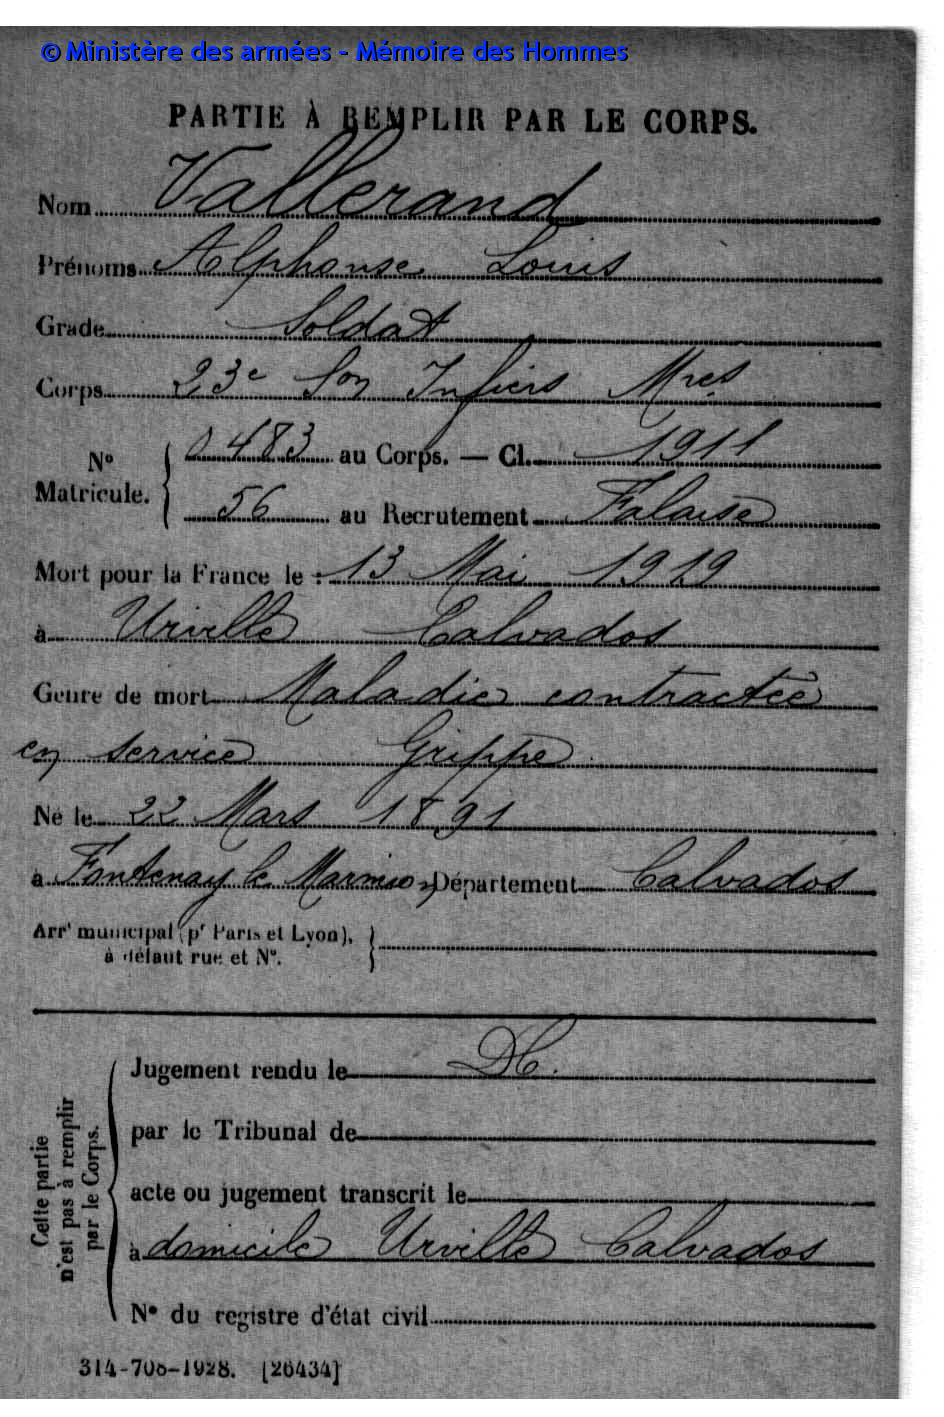 © Ministère des armées - Mémoire des Hommes
PARTIE À REMPLIR PAR LE CORPS.
Nom Vallerand
Prénoms Alphonse Louis
Grade Soldat
Corps 23e Son Infiers Mres
No Matricule. { 0483 au Corps. — Cl. 1911
56 au Recrutement Falaise
Mort pour la France le : 13 Mai 1919
à Urville Calvados
Genre de mort Maladie contractée
en service Grippe
Né le 22 Mars 1891
à Fontenay le Marmion Département Calvados
Arrt municipal (pr Paris et Lyon),
à défaut rue et No.
Cette partie n'est pas à remplir par le Corps.
Jugement rendu le
par le Tribunal de
acte ou jugement transcrit le
à domicile Urville Calvados
No du registre d'état civil
314-708-1928. [26434]